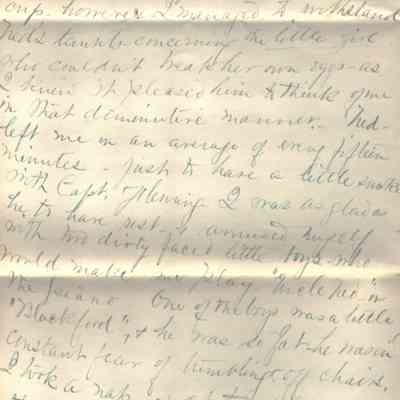 cups. however I managed to withstand
Ted's taunts concerning the little girl
who couldn't break her own eggs - as
I knew it pleased him to think of me
in that diminutive manner. Ted -
left me on an average of every fifteen
minutes - just to have a little smoke
with Capt. Fleming I was as glad as
he to have rest - I amused myself
with two dirty faced little boys - who
would make me play "Uncle Ned" on
the piano One of the boys was a little
"Blackford", & he was so fat - he was in
constant fear of tumbling off chairs.
I took a nap